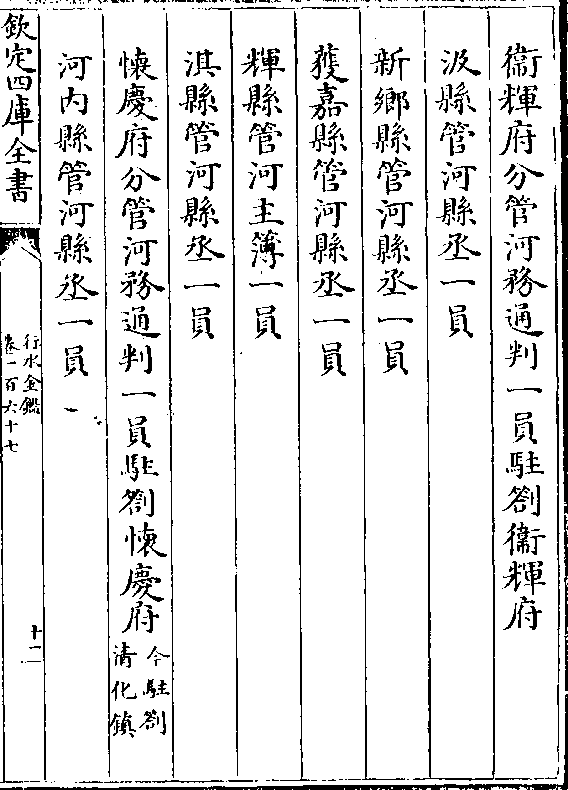 衞輝府分管河務通判一員駐劄衞輝府
汲縣管河縣丞一員
新鄉縣管河縣丞一員
獲嘉縣管河縣丞一員
輝縣管河主簿一員
淇縣管河縣丞一員
懷慶府分管河務通判一員駐劄懷慶府今駐劄清化鎮
河内縣管河縣丞一員
欽定四庫全書
行水金鑑
卷一百六十七
十二